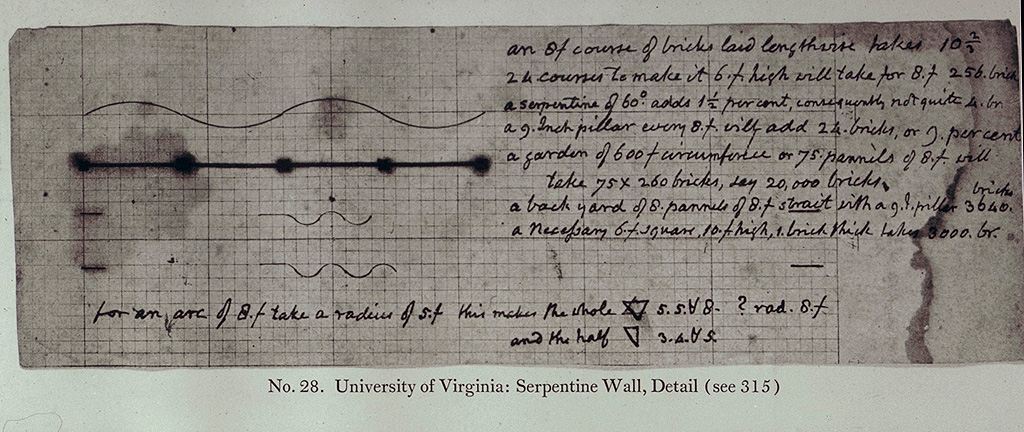 an 8f course of bricks laid lengthwise takes 10 2/3
24 courses to make it 6.f high will take for 8.f 256. brick
a serpentine of 60° adds 1½ per cent, consequently not quite 4. br.
a 9. Inch pillar every 8.f. will add 24. bricks, or 9. per cent
a garden of 600f circumference or 75. pannels of 8.f. will
take 75 x 260 bricks, say 20,000 bricks.
a back yard of 8. pannels of 8.f strait with a 9.I. pillar 3040. bricks
a necessary 6.f. square, 10.f high, 1. brick thick takes 3000. br.
for an arc of 8.f take a radius of 5.f this makes the whole 5.5.&8. ? rad. 8.f
and the half 3.4.&5.
No. 28. University of Virginia: Serpentine Wall, Detail (see 315)